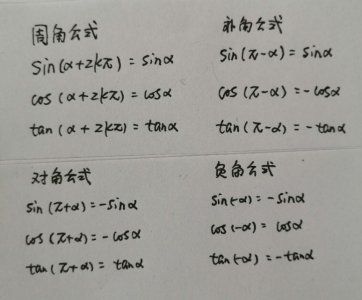 周角公式
sin(α+2kπ)=sinα
cos(α+2kπ)=cosα
tan(α+2kπ)=tanα
补角公式
sin(π-α)=sinα
cos(π-α)=-cosα
tan(π-α)=-tanα
对角公式
sin(π+α)=-sinα
cos(π+α)=-cosα
tan(π+α)=tanα
负角公式
sin(-α)=-sinα
cos(-α)=cosα
tan(-α)=-tanα